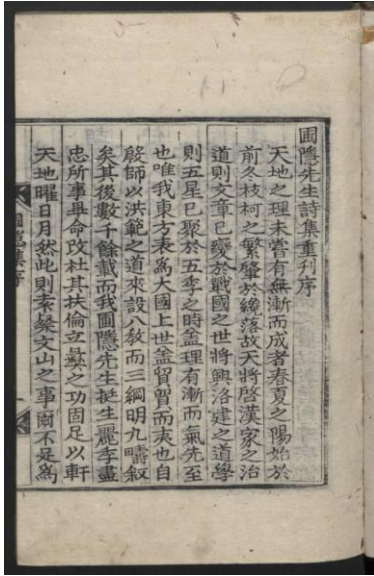 圃隱先生詩集重刊序
天地之理未嘗有無漸而成者春夏之陽始於
前冬枝柯之繁肇於纔落故天將啓漢家之治
道則文章已變於戰國之世將興洛建之道學
則五星已聚於五季之時盖理有漸而氣先至
也唯我東方表為大國上世盖貿貿而夷也自
殷師以洪範之道來設八教而三綱明九疇叙
矣其後數千餘載而我圃隱先生挺生麗季盡
忠所事畢命改杜其扶倫立彝之功固足以軒
天地曜日月然此則秦燊文山之事爾不足為
圃隱集序
一